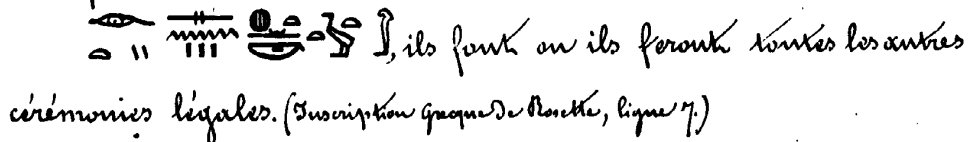 ils font ou ils feront toutes les autres
cérémonies légales. (Inscription Grecque De Rosette, ligne 7.)